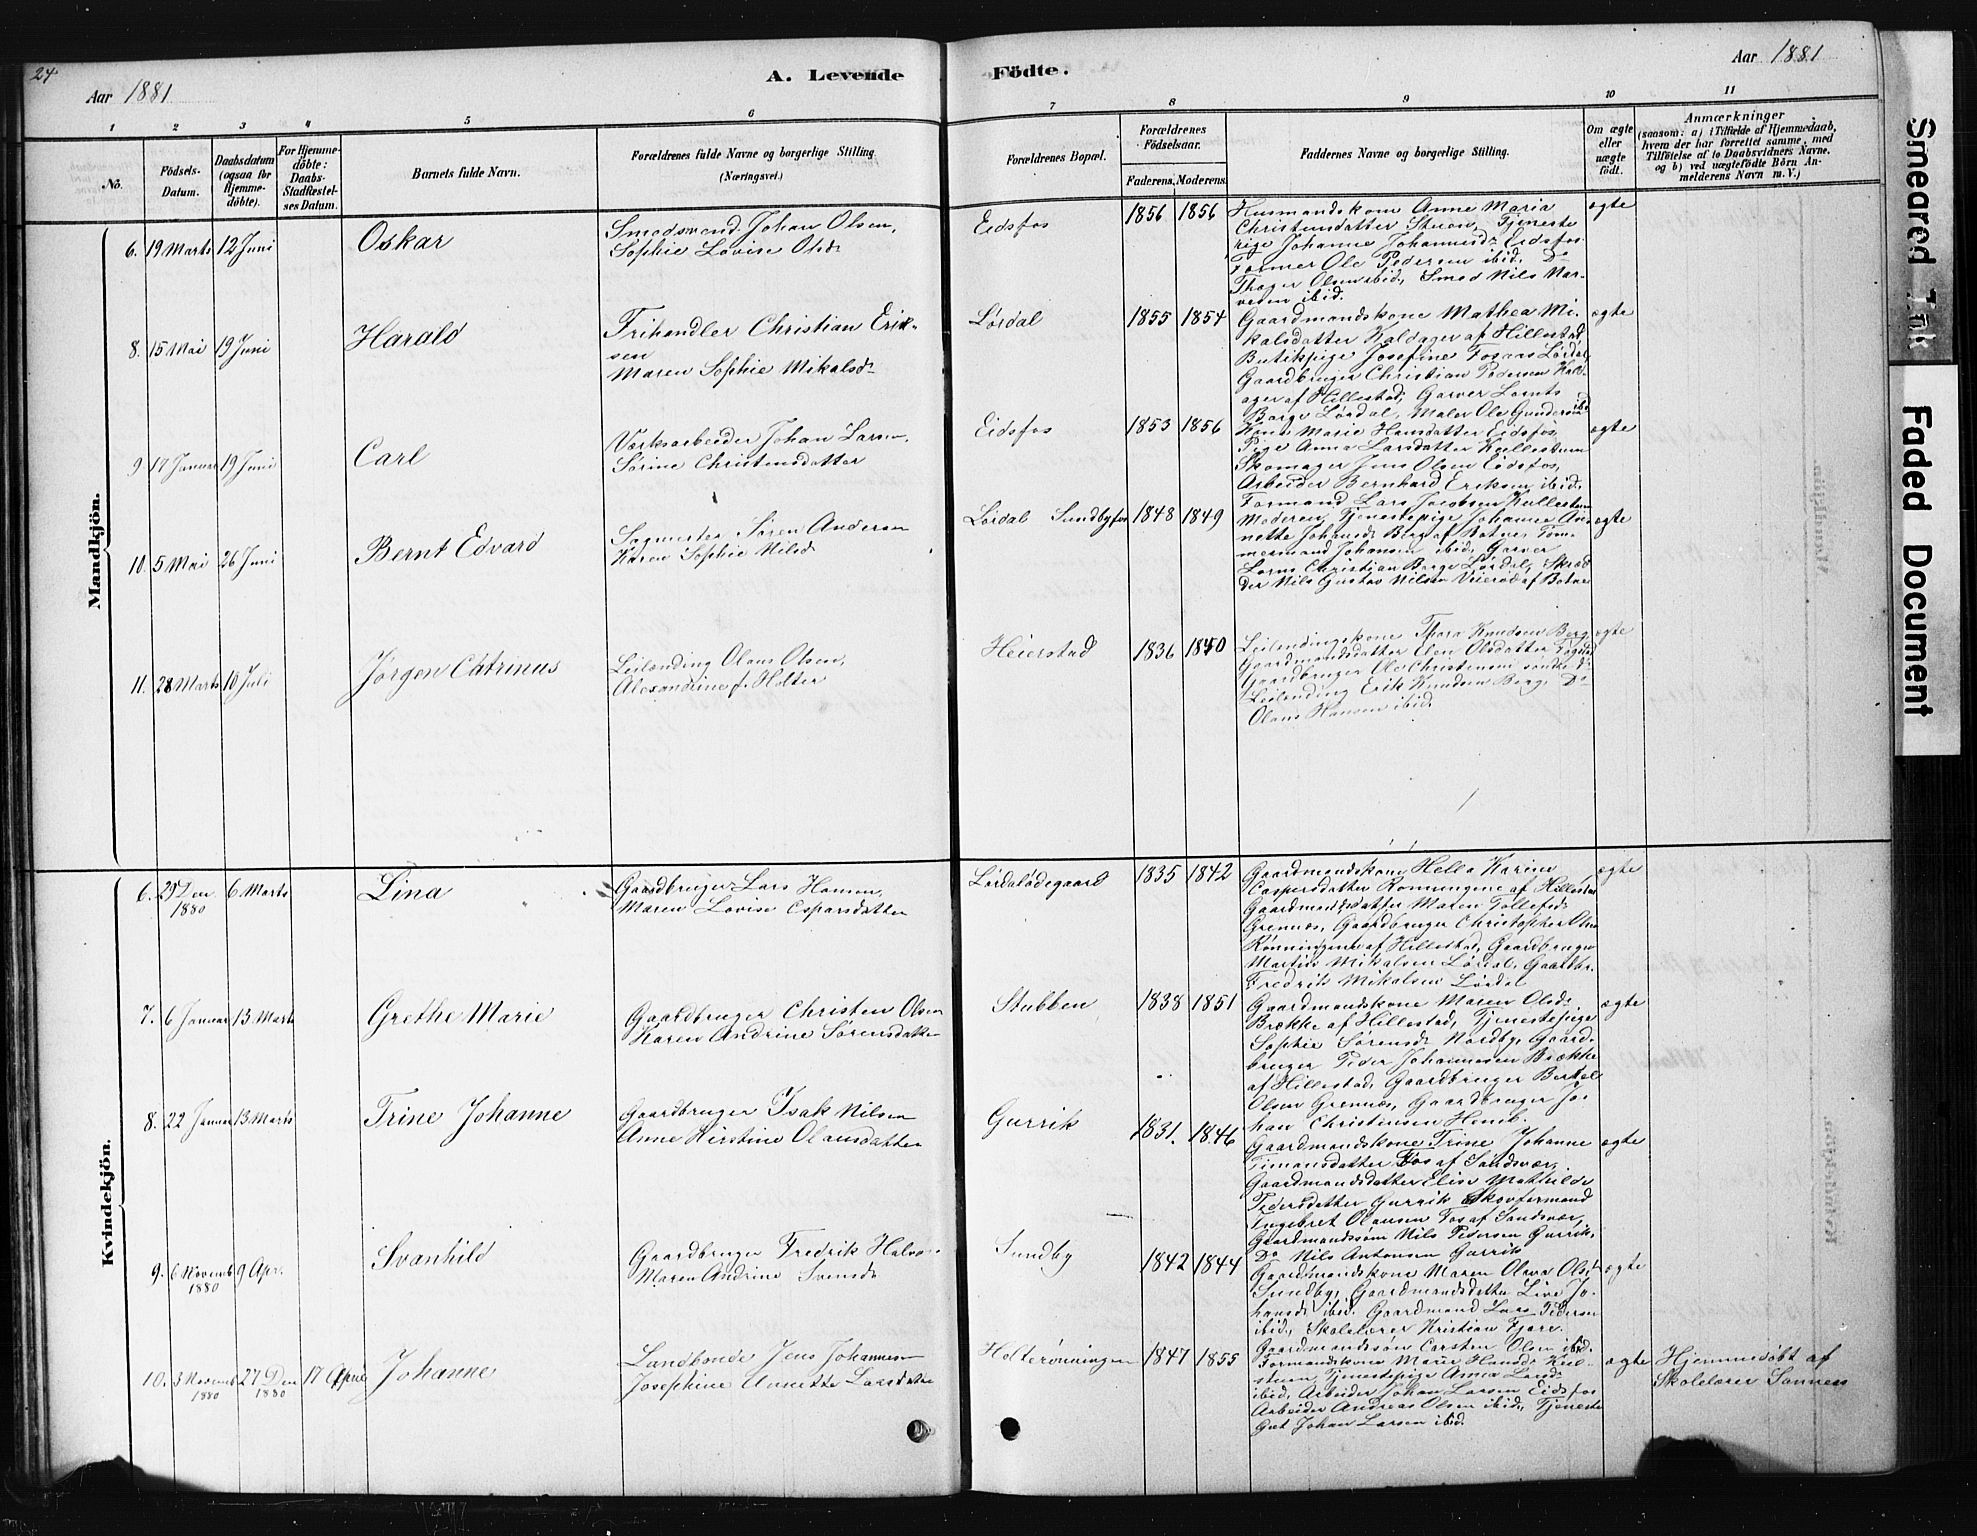 24
Aar 1881
A. Levende
Födte.
Aar 1881
1 2 3 4 5 6 7 8 9 10 11
No.
Födsels-Datum.
Daabsdatum (ogsaa for Hjemmedöbte).
For Hjemmedöbte: Daabs-Stadfæstelses Datum.
Barnets fulde Navn.
Forældrenes fulde Navne og borgerlige Stilling
(Næringsvei.)
Forældrenes Bopæl.
Forældrenes Födselsaar.
Faderens. Moderens.
Faddernes Navne og borgerlige Stilling.
Om ægte eller uægte födt.
Anmærkninger
(saasom: a) i Tilfælde af Hjemmedaab,
hvem der har forrettet samme, med
Tilföielse af to Daabsvidners Navne,
og b) ved uægtefödte Börn An-
melderens Navn m. V.)
Mandkjön.
6. 19 Marts 12 Juni
Oskar
Smedsvend Johan Olsen,
Sophie Lovise Olsdr
Eidsfos
1856 1856
Husmandskone Anne Maria
Christensdatter Stuen, Tjeneste
pige Johanne Johannesdr Eidsfos
Former Ole Pedersen ibid, Do
Thager Olsen ibid, Smed Nils Nar-
vesen ibid.
ægte
8. 15 Mai 19 Juni
Harald
Frihandler Christian Erik-
sen
Maren Sophie Mikalsdr
Lørdal
1855 1854
Gaardmandskone Mathea Mi-
kalsdatter Kaldager af Hillestad,
Butikpige Josefine Fosaas Lørdal,
Gaardbruger Christian Pedersen Kald-
ager af Hillestad, Garver Lornts
Berge Lørdal, Maler Ole Gundersen ibid
ægte
9 17 Januar 19 Juni
Carl
Værksarbeider Johan Larsen,
Sørine Christensdatter
Eidsfos
1853 1856
Kone Marie Hansdatter Eidsfos,
Pige Anna Larsdatter Kullestuen
Skomager Jens Olsen Eidsfos,
Arbeider Bernhard Eriksen ibid,
Formand Lars Jacobsen Kullestuen
ægte
10. 5 Mai 26 Juni
Bernt Edvard
Sagmester Søren Andersen
Karen Sophie Nilsdr
Lørdal Sundbyfos
1848 1849
Moderen, Tjenestepige Johanne An-
nette Johansdr Berg af Botne, Tøm-
mermand Johansen ibid, Garver
Lorns Christian Berge Lørdal, Skræd
der Nils Gustav Nilsen Vrierød af Botne
ægte
11. 28 Marts 10 Juli
Jørgen Catrinus
Leilænding Olaus Olsen,
Alexandrine f. Holter
Heierstad
1836 1840
Leilendingskone Thora Knudsen Berg
Gaardmandsdatter Elen Olsdatter
Gaardbruger Ole Christensen søndre Do
Leilending Erik Knudsen Berg, Do
Olaus Hansen ibid.
ægte
Kvindekjön.
6. 29 Den 1880 6 Marts
Lina
Gaardbruger Lars Hansen,
Maren Lovise Caspersdatter
Lørdalødegaard
1835 1842
Gaardmandskone Hella Karine
Caspersdatter Rønningene af Hillestad
Gaardmandsdatter Maren Tollefsdr
Grennes, Gaardbruger Christopher Olsen
Rønningene af Hillestad, Gaardbruger
Martin Mikalsen Lørdal, Gaardbr.
Fredrik Mikalsen Lørdal
ægte
7. 6 Januar 13 Marts
Grethe Marie
Gaardbruger Christen Olsen
Karen Andrine Sørensdatter
Stubben
1838 1851
Gaardmandskone Maren Olsdr
Brække af Hillestad, Tjenestepige
Sophie Sørensdr Nordby, Gaard-
bruger Peder Johannesen Brække
af Hillestad, Gaardbruger Bertel
Olsen Grennes, Gaardbruger Jo-
han Christensen
ægte
8. 22 Januar 13 Marts
Trine Johanne
Gaardbruger Isak Nilsen
Anne Kirstine Olausdatter
Gurrik
1831. 1846
Gaardmandskone Trine Johanne
Timansdatter Fos af Sandsvær,
Gaardmandsdatter Elise Mathilde
Pedersdatter Gurrik, Skovformand
Ingebret Olausen Fos af Sandsvær,
Gaardmandssøn Nils Pedersen Gurrik,
Do Nils Antonsen Gurrik
ægte
9. 6 Novemb 1880 9 Apr.
Svanhild
Gaardbruger Fredrik Halvo
Maren Andrine Svensdr
Sundby
1842 1844
Gaardmandskone Maren Olava Olsdr
Sundby, Gaardmandsdatter Live Jo-
hansdr ibid. Gaardmand Lars Pedersen
ibid, Skolelærer Kristian Fjære
Gaardmandssøn Carsten Olsen ibid.
ægte
10. 3 Novemb 1880 27 Den 1880 17 April
Johanne
Landbonde Jens Johannesen
Josephine Annette Larsdatter
Holterønningen
1847 1855
Formandskone Marie Hansdr Kul-
stuen, Tjenestepige Anna Larsdr
ibid, Arbeider Johan Larsen Eidsfos
Arbeider Andreas Olsen ibid, Tjeneste
Gut Johan Larsen ibid.
ægte
Hjemmedøbt af
Skolelærer Sanness
Smeared Ink
Faded Document